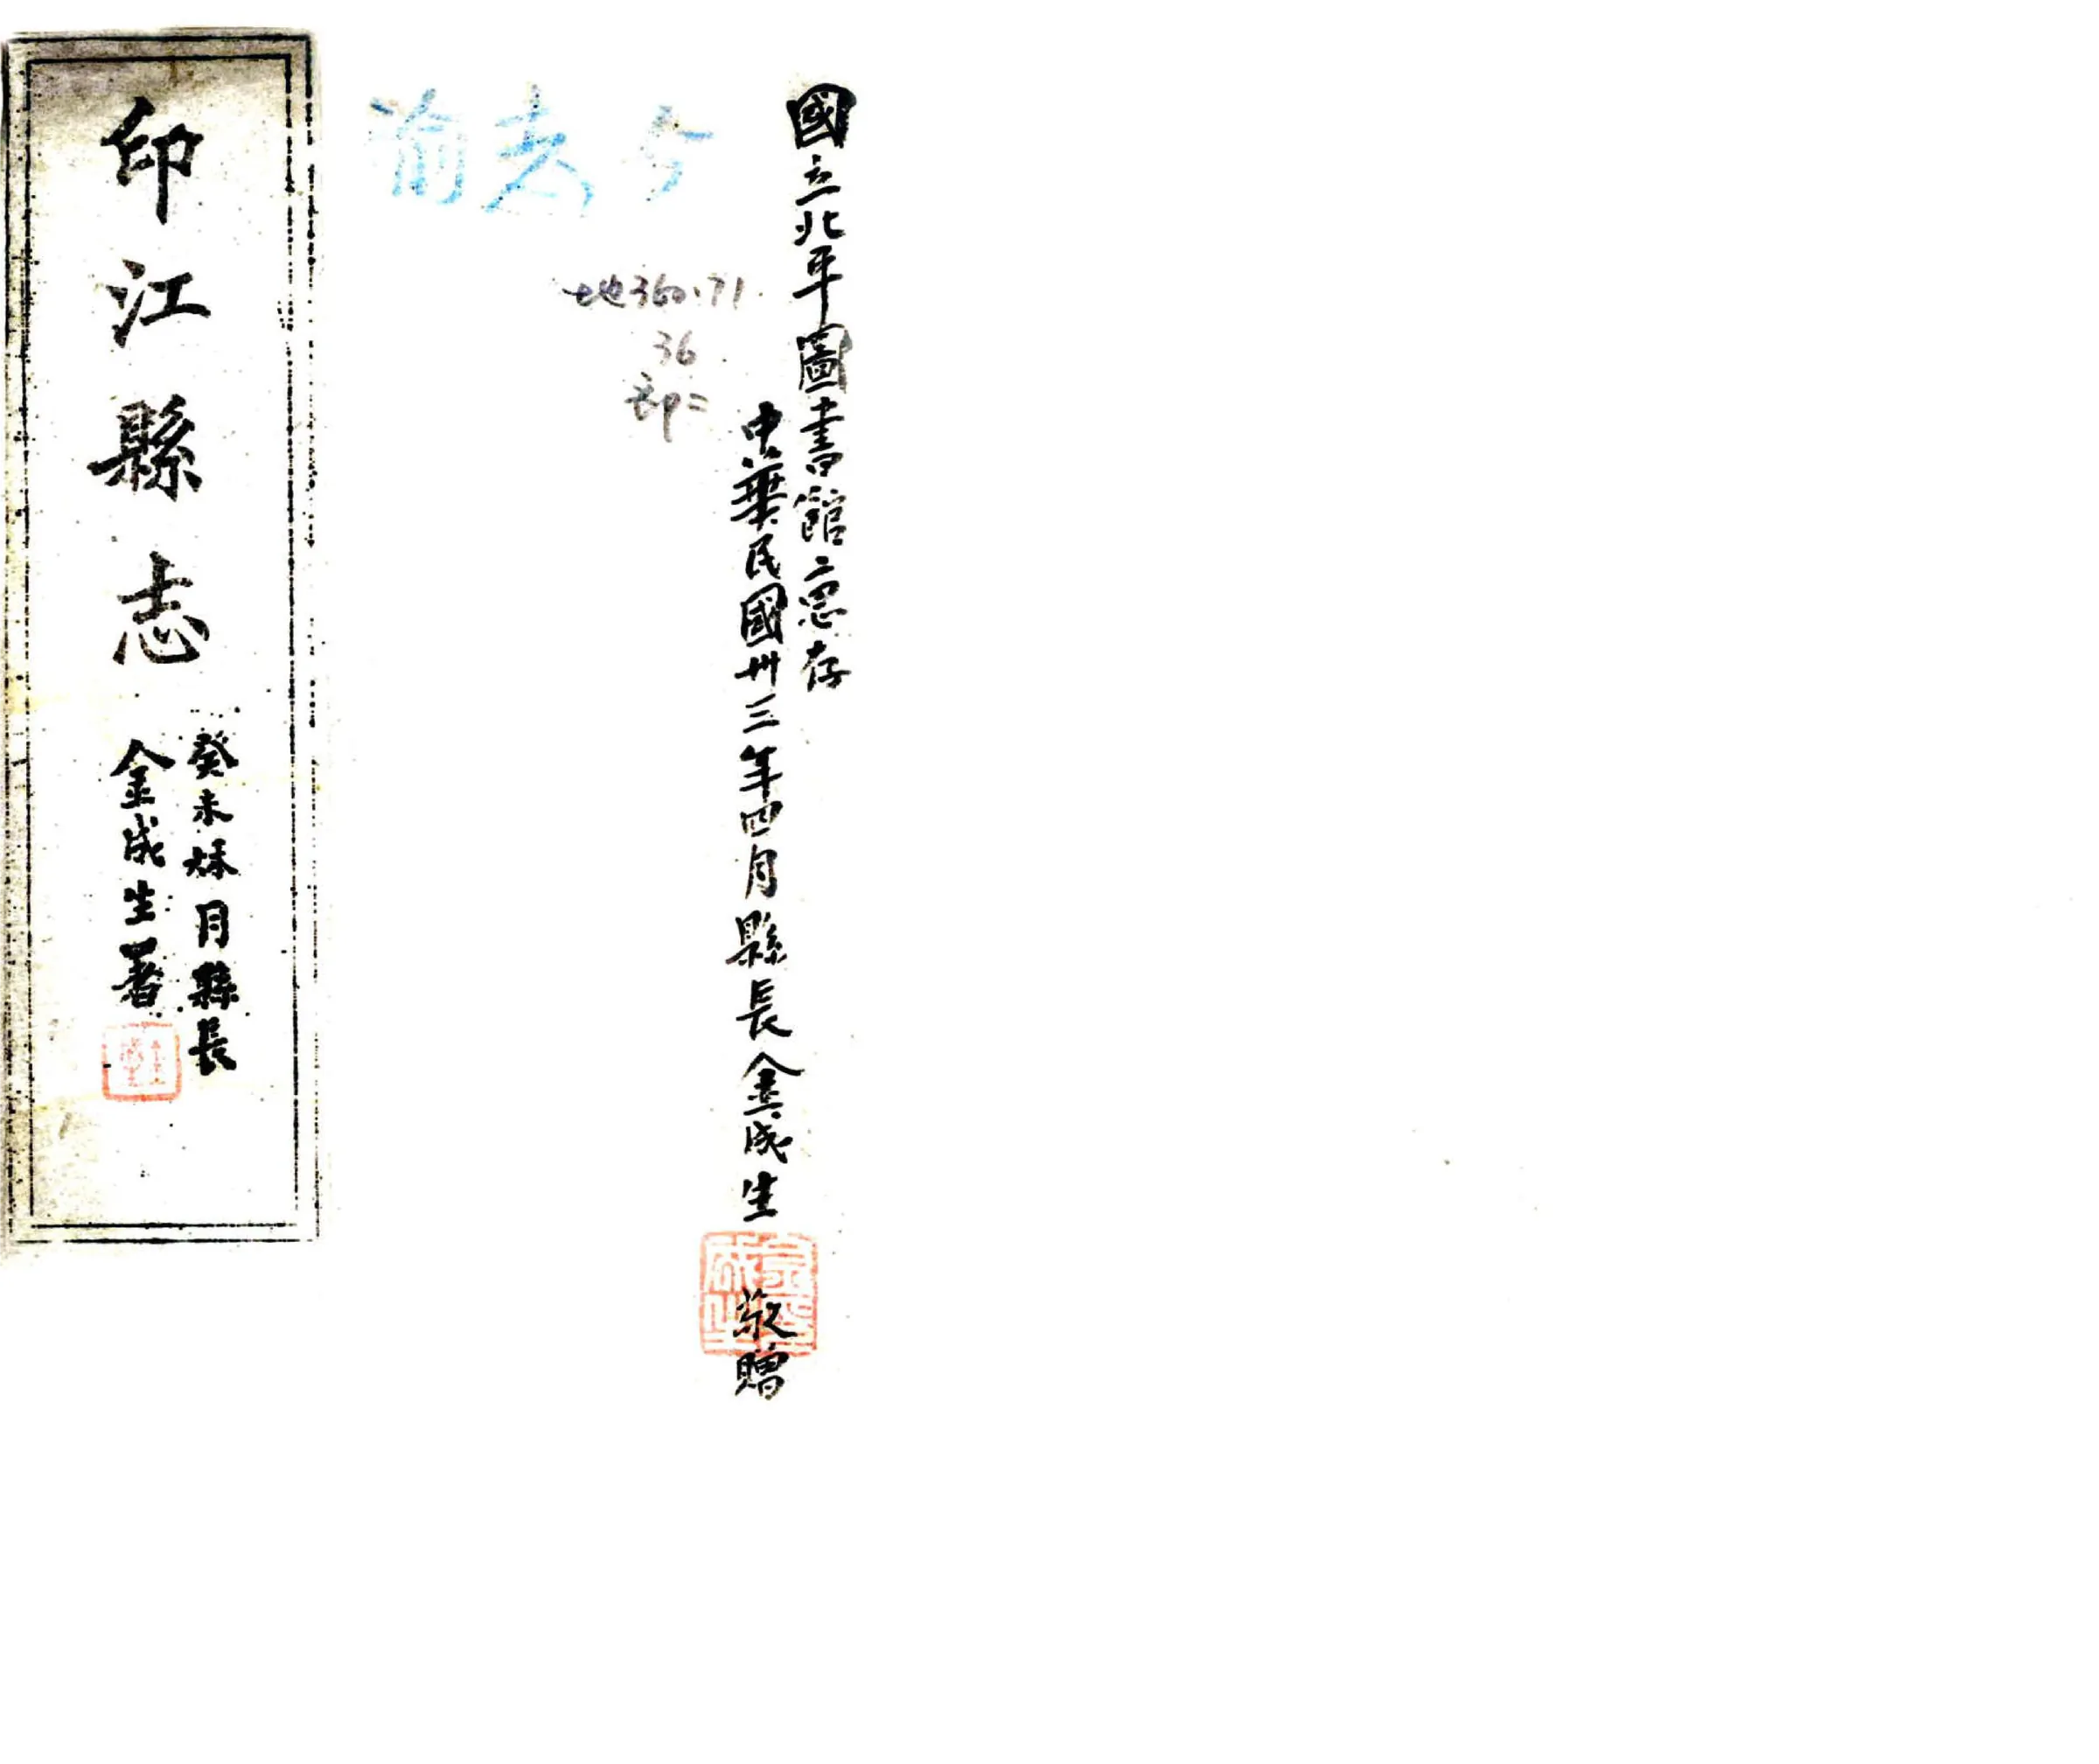 國立北平圖書館惠存
中華民國卅三年四月縣長金成生敬贈
地360.71
36
部二
印江縣志
癸未秌月縣長
金成生署